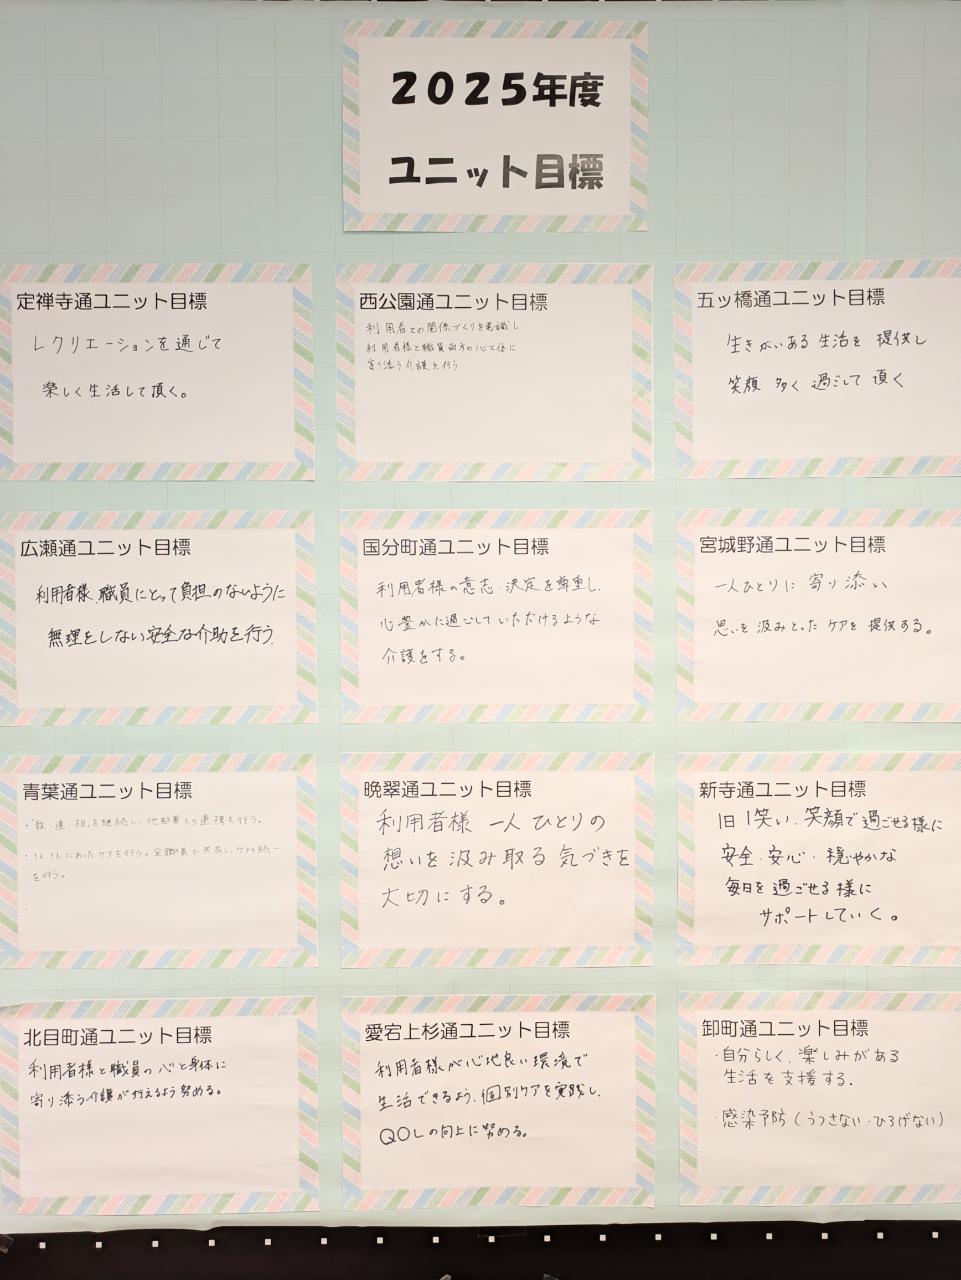 2025年度
ユニット目標
定禅寺通ユニット目標
レクリエーションを通じて
楽しく生活して頂く。
西公園通ユニット目標
利用者との関係づくりを意識し
利用者様と職員両方の心と体に
寄り添う介護を行う
五ッ橋通ユニット目標
生きがいある生活を提供し
笑顔多く過ごして頂く
広瀬通ユニット目標
利用者様、職員にとって負担のないように
無理をしない安全な介助を行う。
国分町通ユニット目標
利用者様の意志・決定を尊重し、
心豊かに過ごしていただけるような
介護をする。
宮城野通ユニット目標
一人ひとりに寄り添い
思いを汲みとったケアを提供する。
青葉通ユニット目標
・「報・連・相」を継続し、他部署との連携を行う。
・1人1人にあったケアを行う。全職員で共有し、ケアの統一
を行う。
晩翠通ユニット目標
利用者様一人ひとりの
想いを汲み取る気づきを
大切にする。
新寺通ユニット目標
1日1笑い、笑顔で過ごせる様に
安全・安心・穏やかな
毎日を過ごせる様に
サポートしていく。
北目町通ユニット目標
利用者様と職員の心と身体に
寄り添う介護が行えるよう努める。
愛宕上杉通ユニット目標
利用者様が心地良い環境で
生活できるよう、個別ケアを実践し、
QOLの向上に努める。
卸町通ユニット目標
・自分らしく、楽しみがある
生活を支援する。
・感染予防(うつさない・ひろげない)